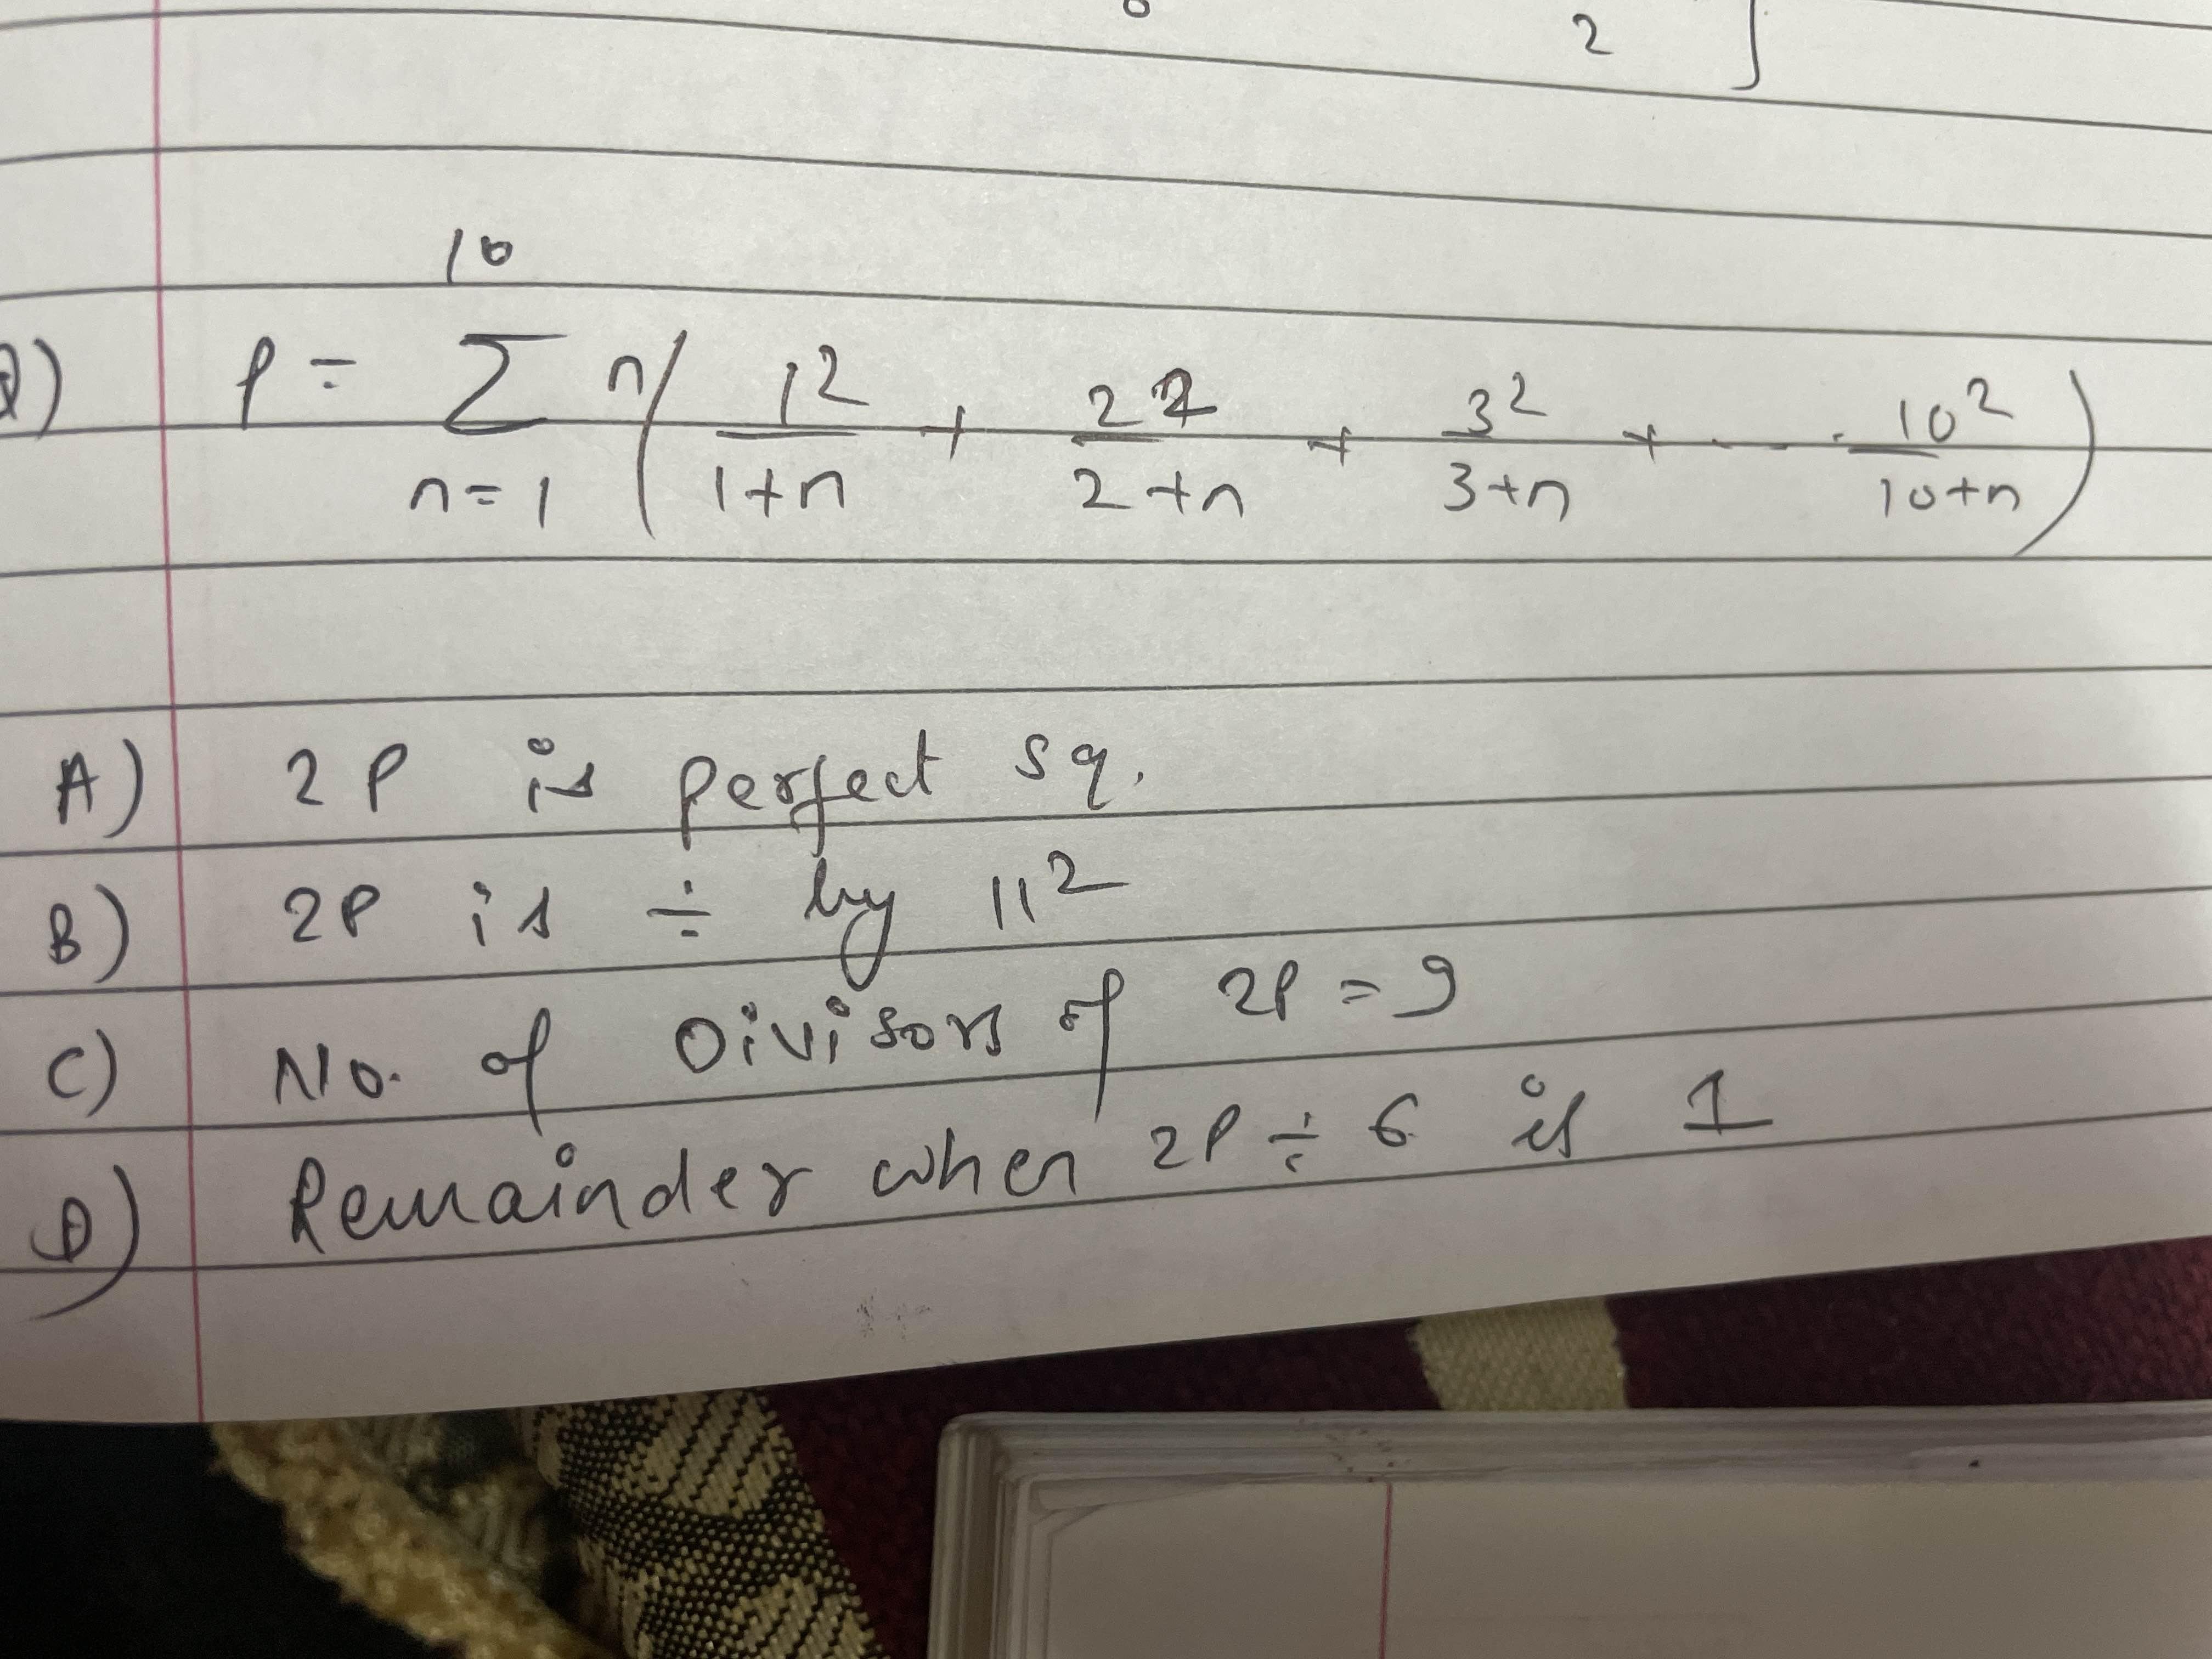 2 ]
Q) P = \sum_{n=1}^{10} n ( \frac{1^2}{1+n} + \frac{2^2}{2+n} + \frac{3^2}{3+n} + - - - \cdot \frac{10^2}{10+n} )
A) 2P is perfect sq.
B) 2P is ÷ by 11^2
C) No. of Divisors of 2P = 9
D) Remainder when 2P ÷ 6 is 1